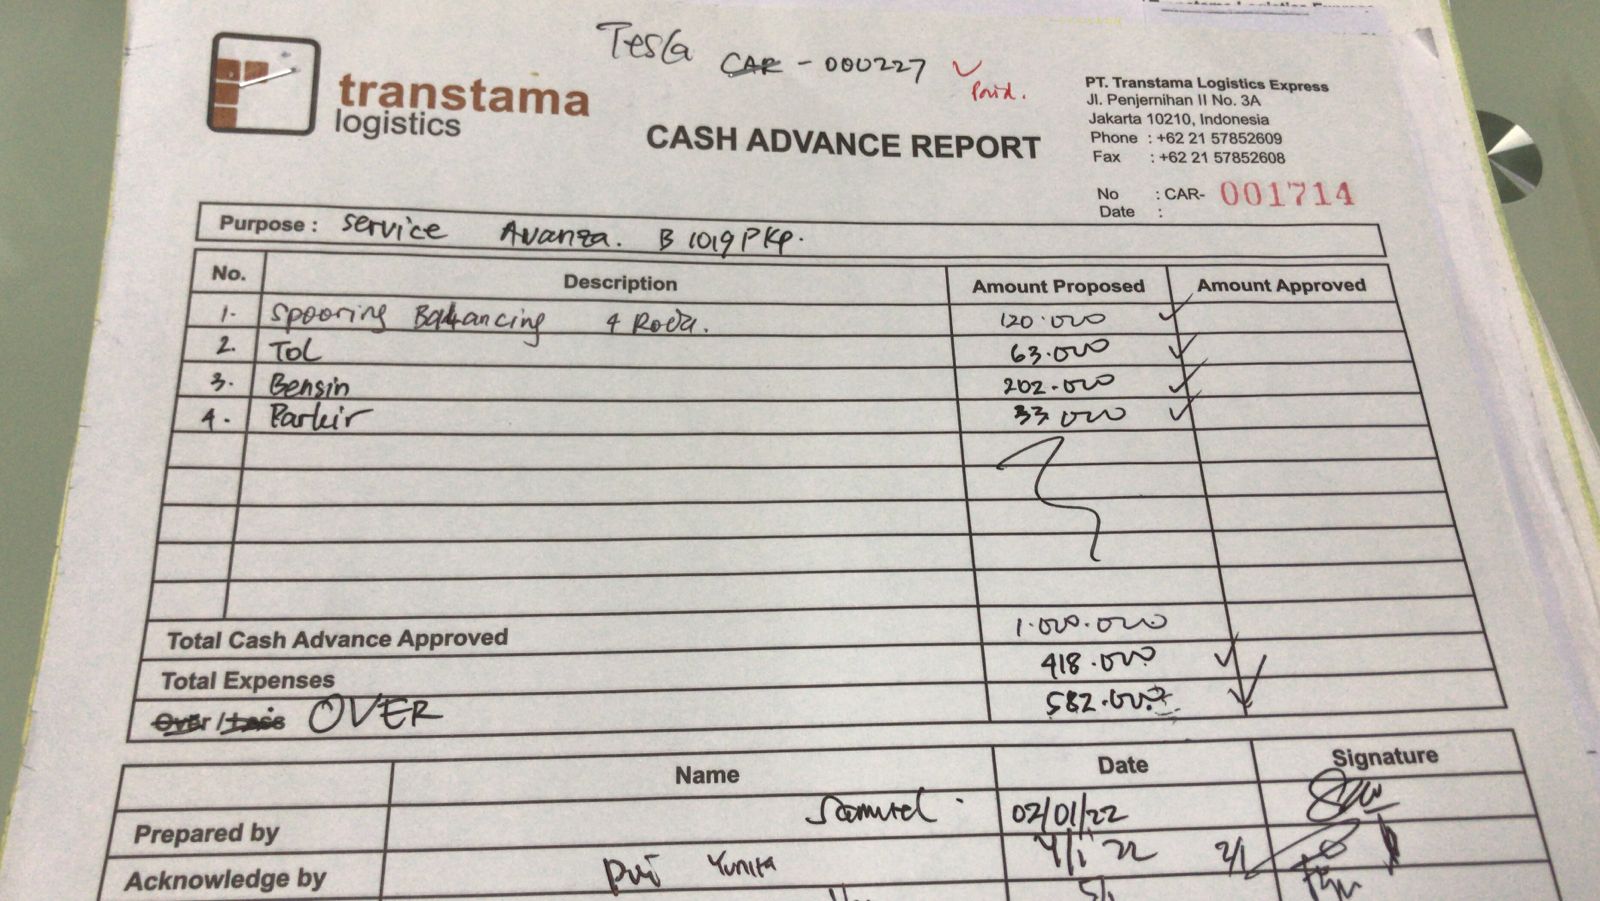 Tesla CAR - 000227 Paid.
transtama
logistics
CASH ADVANCE REPORT
PT. Transtama Logistics Express
Jl. Penjernihan II No. 3A
Jakarta 10210, Indonesia
Phone : +62 21 57852609
Fax : +62 21 57852608
No : CAR- 001714
Date :
Purpose : Service Avanza. B 1019 PKP.
No. Description Amount Proposed Amount Approved
1. Spooring Balancing 4 Roda. 120.000
2. TOL 63.000
3. Bensin 202.000
4. Parkir 33.000
Total Cash Advance Approved 1.000.000
Total Expenses 418.000
Over / Less OVER 582.000
Name Date Signature
Prepared by Samuel. 02/01/22
Acknowledge by Puri Yunita 4/1 22 2/1
5/1